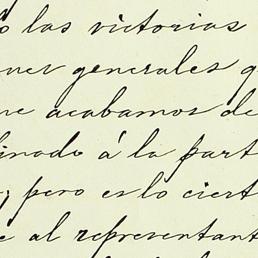 las victorias
generales
acabamos de
á la part
; pero es lo ciert
al representant